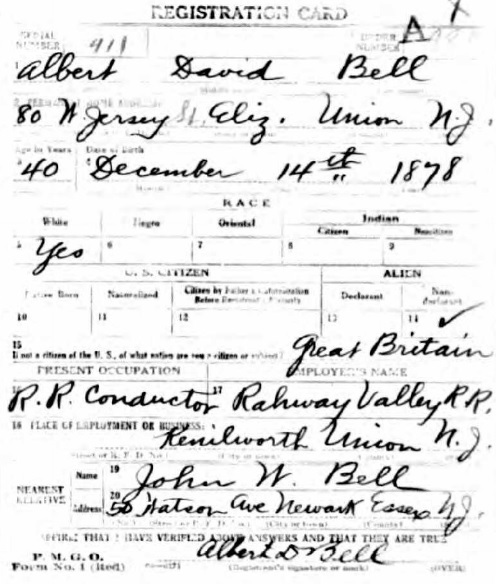 REGISTRATION CARD
SERIAL NUMBER 911 ORDER NUMBER A
1 Albert David Bell
2 PERMANENT HOME ADDRESS:
80 W Jersey St. Eliz. Union N.J.
Age in Years Date of Birth
40 December 14th 1878
RACE
White Negro Oriental Indian
Citizen Noncitizen
5 Yes 6 7 8 9
U. S. CITIZEN ALIEN
Native Born Naturalized Citizen by Father's Naturalization Before Registrant's Majority Declarant Non-declarant
10 11 12 13 14 ✓
15
If not a citizen of the U. S., of what nation are you a citizen or subject? Great Britain
PRESENT OCCUPATION EMPLOYER'S NAME
R.R. Conductor 17 Rahway Valley R.R.
18 PLACE OF EMPLOYMENT OR BUSINESS:
Kenilworth Union N.J.
NEAREST RELATIVE
Name 19 John W. Bell
Address 20 50 Watson Ave Newark Essex N.J.
(No.) (Street or R. F. D. No.) (City or town) (County)
I AFFIRM THAT I HAVE VERIFIED ABOVE ANSWERS AND THAT THEY ARE TRUE
P. M. G. O.
Form No. 1 (Red) Albert D Bell
(Registrant's signature or mark) (OVER)